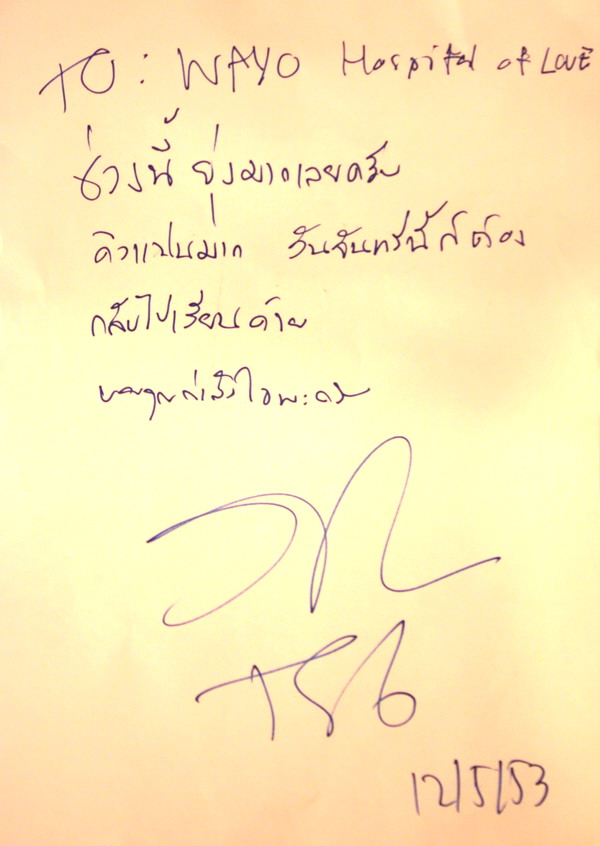 TO : WAYO Hospital of LOVE
ช่วงนี้ ยุ่งมากเลยครับ
คิวแน่นมาก วันจันทร์นี้ก็ต้อง
กลับไปเรียนด้วย
ขอบคุณกำลังใจนะครับ
12/5/53